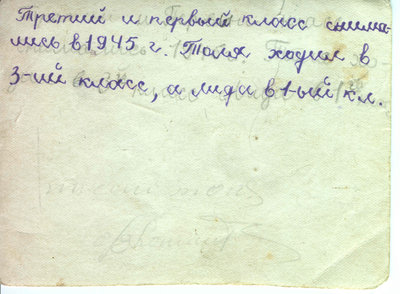 Третий и первый класс снима-
лись в 1945 г. Толя ходил в
3-ий класс, а лида в 1-ый кл.